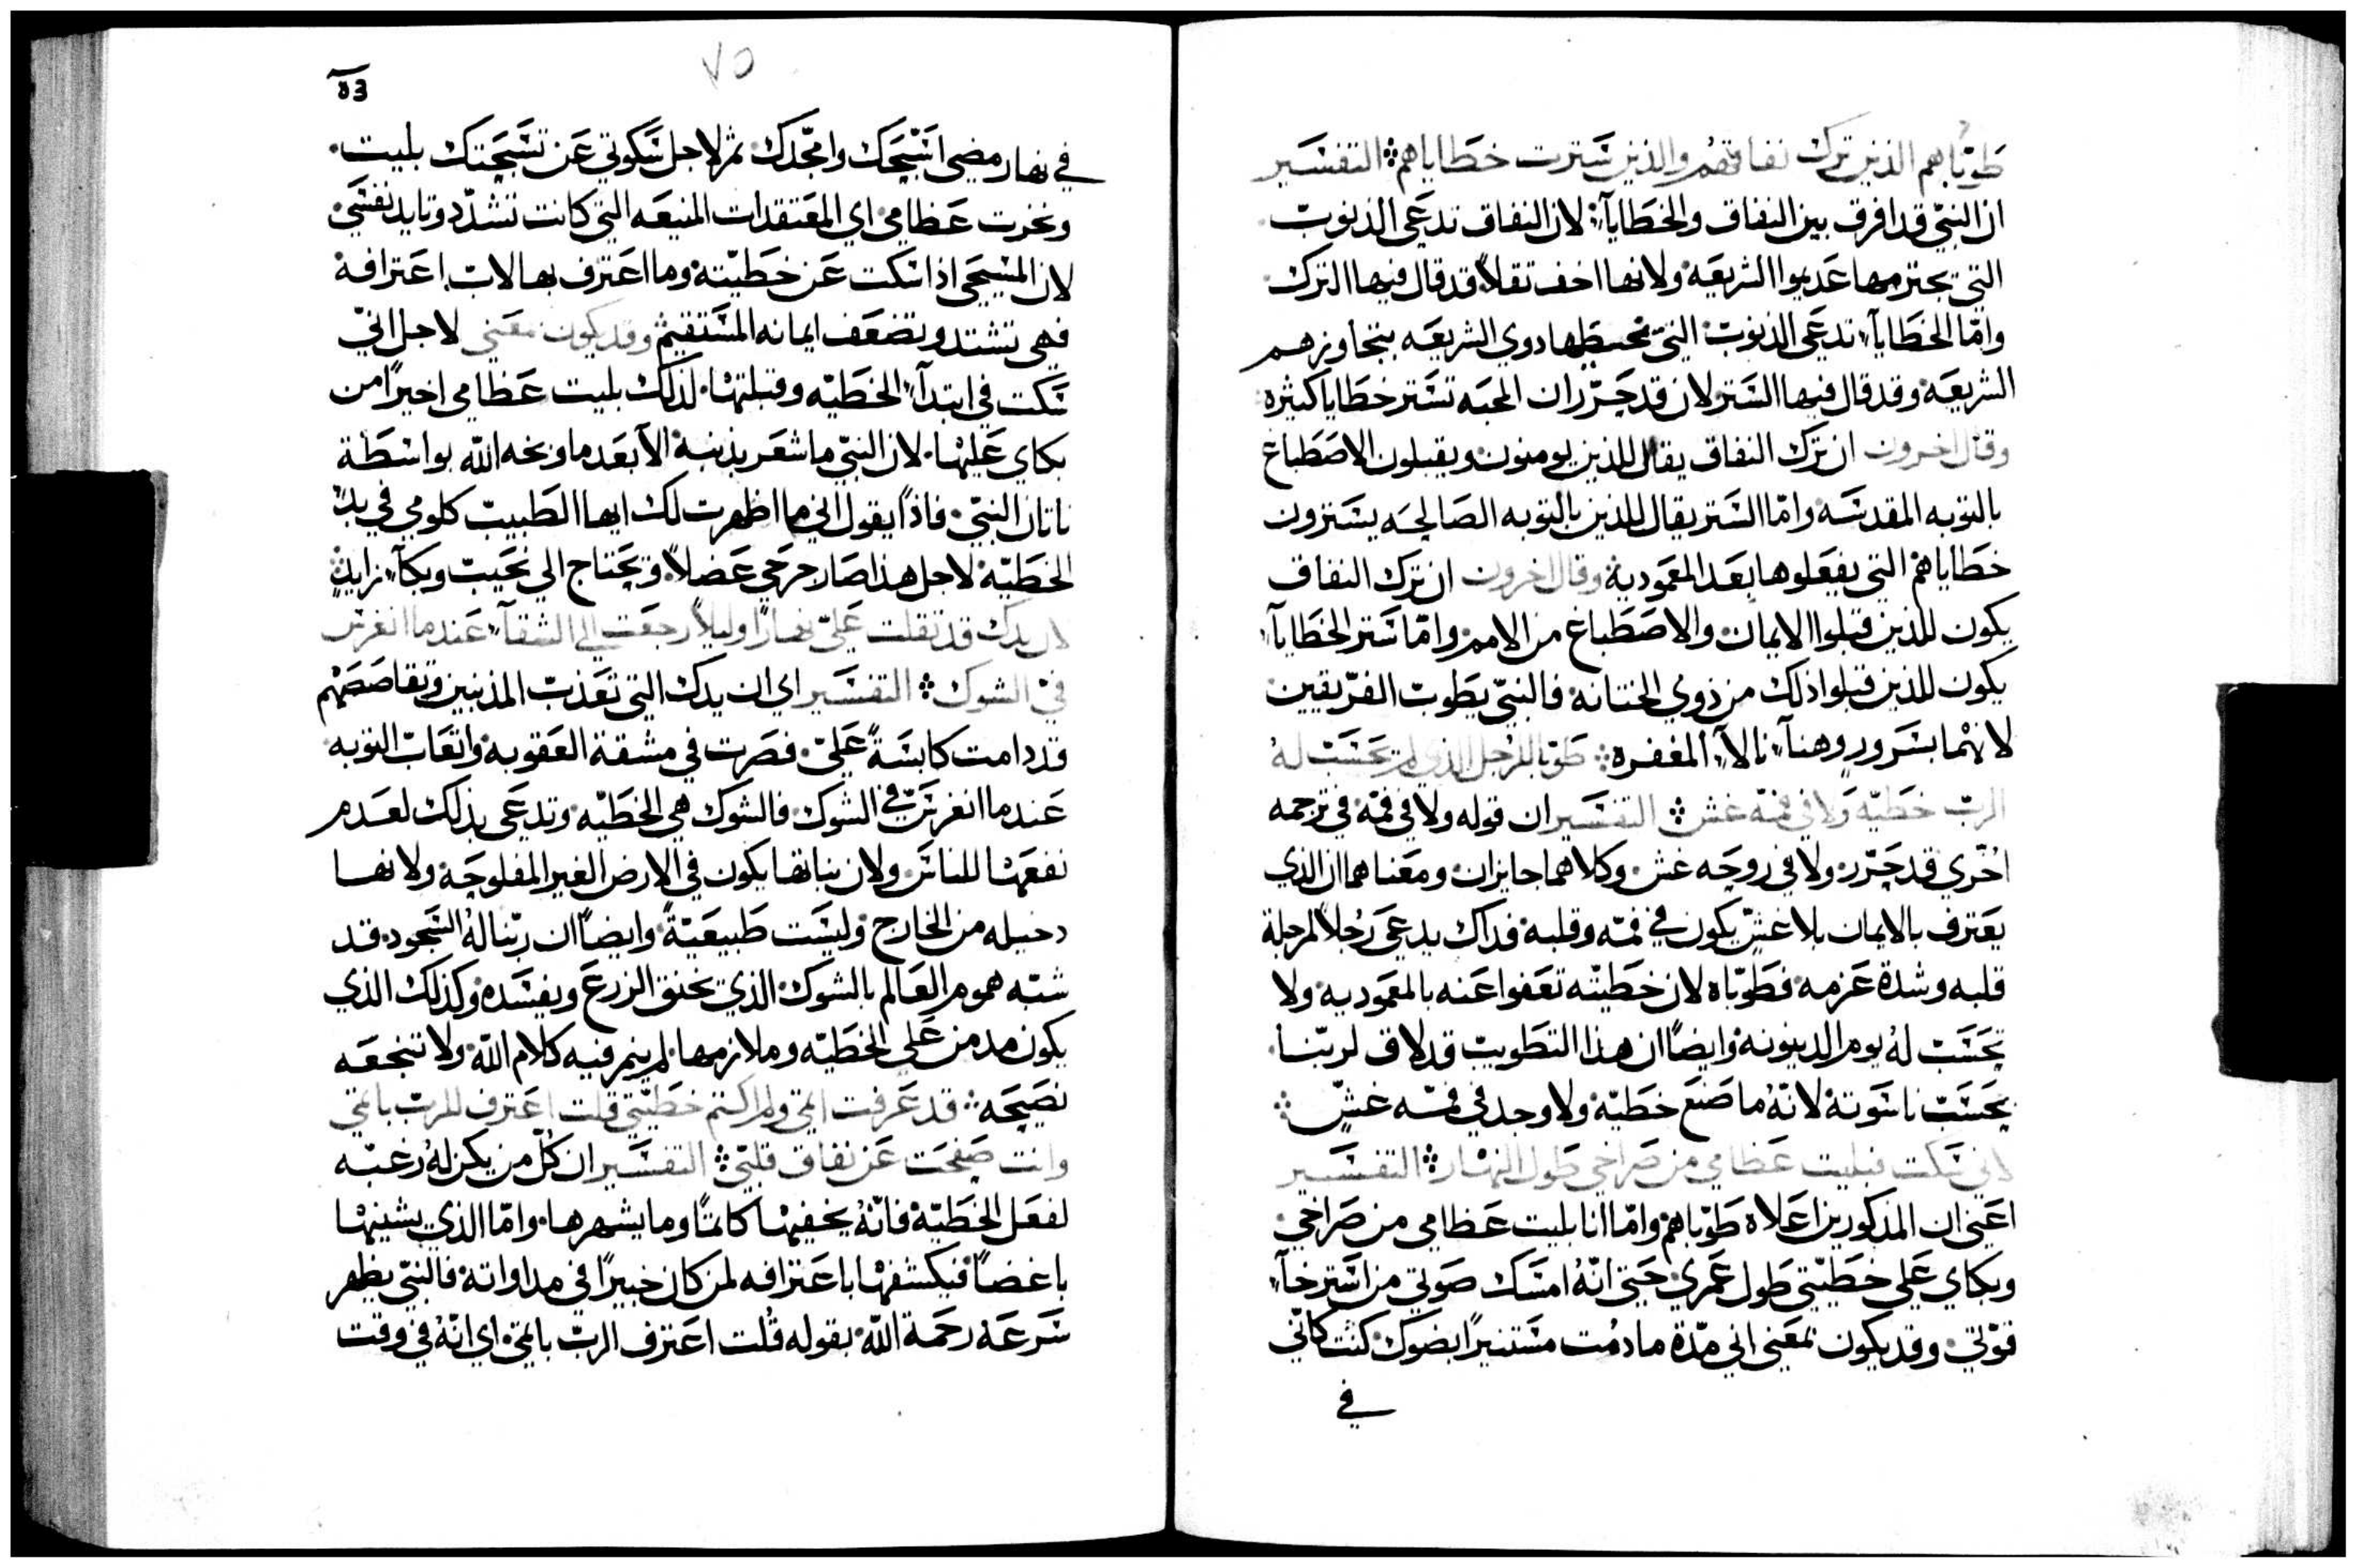 طوباهم الذين ترك نفاقهم والذين سترت خطاياهم ؞ التفسير
ان النبي قد افرق بين النفاق والخطايآء لان النفاق تدعى الذنوب
التي يجترمها عديموا الشريعه ولانها اخف تقلاً قد قال فيها الترك
وامّا الخطايآء تدعى الذنوب التي تحيطها ذوي الشريعه بتجاوزهم
الشريعه وقد قال فيها الستر لان قد حرّر ان المحبه تستر خطايا كثيره
وقال اخرون ان ترك النفاق يقال للذين يومنون ويقبلون الاصطباغ
بالتوبه المقدسه وامّا الستر يقال للذين بالتوبه الصالحه يسترون
خطاياهم التي يفعلوها بعد المعمودية وقال اخرون ان ترك النفاق
يكون للذين قبلوا الايمان والاصطباغ من الامم وامّا ستر الخطايآء
يكون للذين قبلوا ذلك من ذوي الختانه فالنبي يطوب الفريقين
لانهما بسرور وهنآء نالآء المغفره ؞ طوبا للرجل الذي لم يحسب لهُ
الرب خطيّه ولا في فمّه غش ؞ التفسير ان قوله ولا في فمّه في ترجمه
اخرى قد حرّر ولا في روحه غش وكلاهما جايزان ومعناهما ان الذي
يعترف بالايمان بلا غشّ يكون في فمّه وقلبه فداك يدعى رُجلاً لمرجلة
قلبه وشدة عزمه فطوّباه لان خطيّته تعفوا عنه بالمعموديه ولا
تحسب لهُ يوم الدينونه وايضاً ان هذا التطويب قد لاق لربّنا
بحسب ناسوته لانّهُ ما صنع خطيّه ولا وجد في فمّه غشّ ؞
لاني سكت فبليت عظامي من صراخي طول النهار ؞ التفسير
اعني ان المذكورين اعلاه طوّباهم وامّا انا بليت عظامي من صراخي
وبكاي على خطيّتي طول عمري حتى انّهُ امسك صوتي من استرخآء
قوّتي وقد يكون بمعنى اني مدّة ما دمت مستنيراً بضوك كنت كانّي
في
٧٥
في نهار مضي اسبّحك وامجّدك ثم لاجل سكوتي عن تسبحتك بليت
ونخرت عظامي اي المعتقدات المنيعه التي كانت تشدّد وتايد نفسي
لان المسيحي اذا سكت عن خطيّته وما اعترف بها لاب اعترافه
فهي تشتد وتضعف ايمانه المستقيم وقد يكون معنى لاجل انّي
سكت في ابتدآء الخطيّه وقبلتها لذلك بليت عظامي اخيراً من
بكاي عليها لان النبي ما شعر بذنبه الا بعد ما وبخه الله بواسطة
ناتان النبي فاذاً يقول اني ما اظهرت لك ايها الطبيب كلومي في بدْ
الخطيّه لاجل هذا صار جرحي عضلاً ويحتاج الي نحيب وبكآء زايد
لان يدك قد تقلت عليّ نهاراً وليلاً رجعت الي الشقآء عندما انغرس
في الشوك ؞ التفسير اي ان يدك التي تعذب المذنبين وتقاصصهم
قد دامت كابسةً عليّ فصرت في مشقة العقوبه واتعاب التوبه
عندما انغرس في الشوك فالشوك هي الخطيّه وتدعى بذلك لعدم
نفعها للناس ولان نباتها يكون في الارض الغير المفلوحه ولانها
دخيله من الخارج وليست طبيعيّةً وايضاً ان ربّنا لهُ السجود قد
شبّه هموم العالم بالشوك الذي تخنق الزرع ويفسده وكذلك الذي
يكون مدمن على الخطيّه وملازمها لم ينم فيه كلام الله ولا تنجعه
نصيحه ؞ قد عرفت اثمي ولم اكتم خطيّتي قلت اعترف للرب باثمي
وانت صفحت عن نفاق قلبي ؞ التفسير ان كلّ من يكن لهُ رغبه
لفعل الخطيّه فانّهُ يخفيها كاتماً وما يشهرها وامّا الذي يشينها
باغضاً فيكشفها باعترافه لمن كان خبيراً في مداواته فالنبي يظهر
سرعة رحمة الله بقوله قُلت اعترف الرب باثمي اي انّهُ في وقت